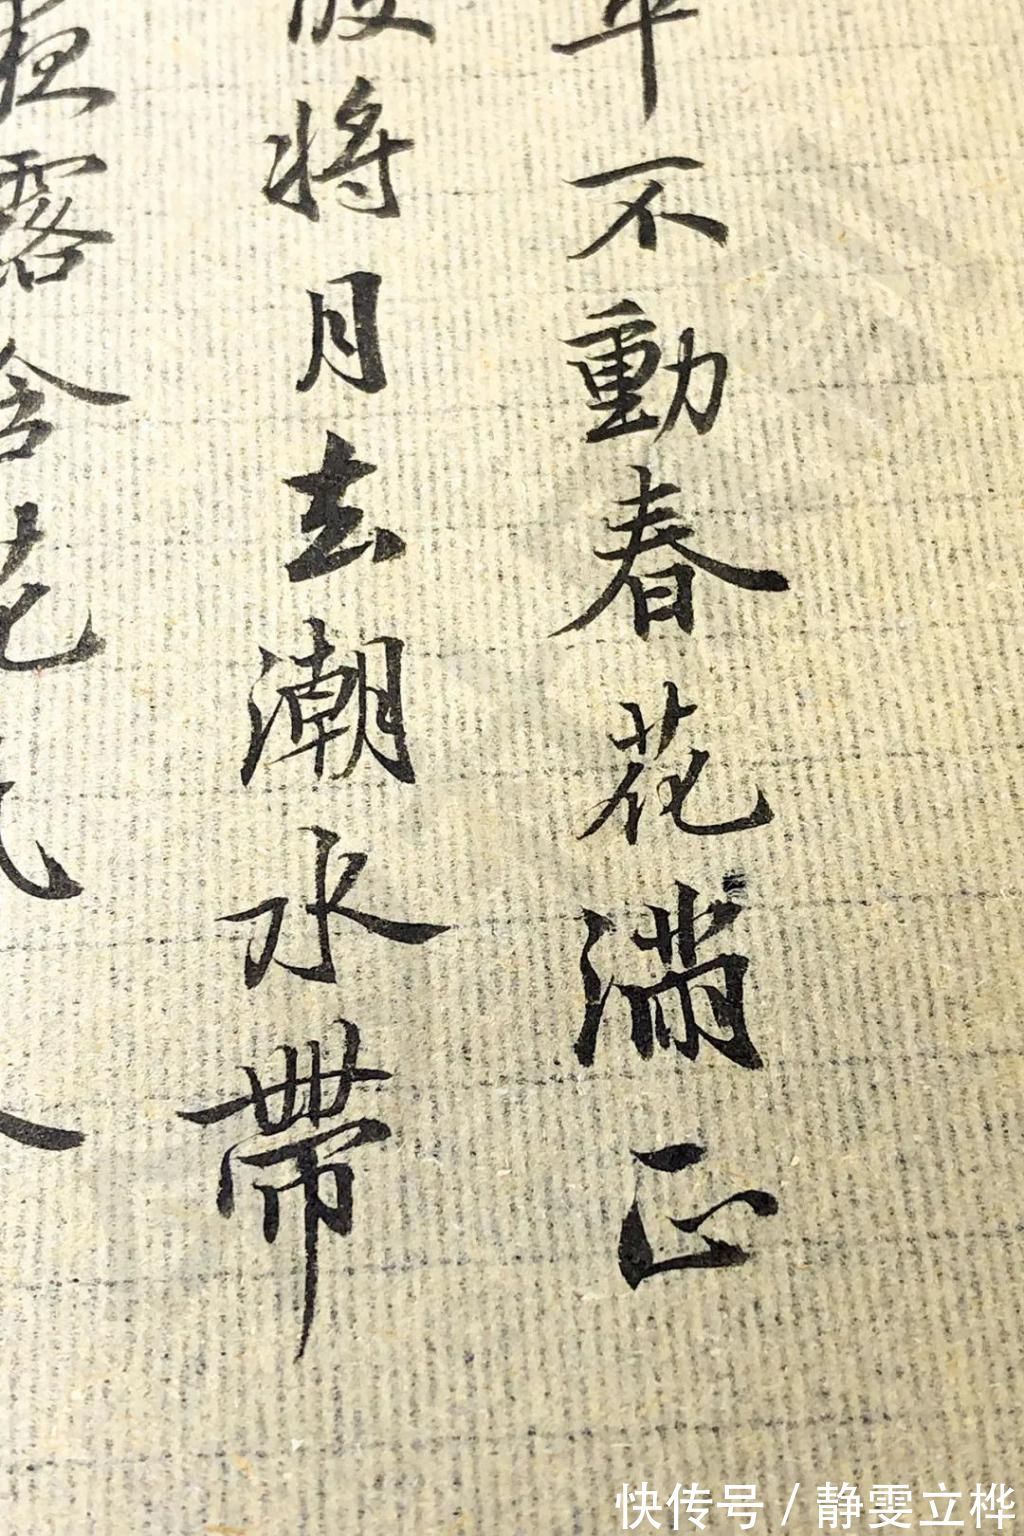 平不動春花满正
波将月去潮水帶
夜露含花氣
快传号 / 静雯立桦